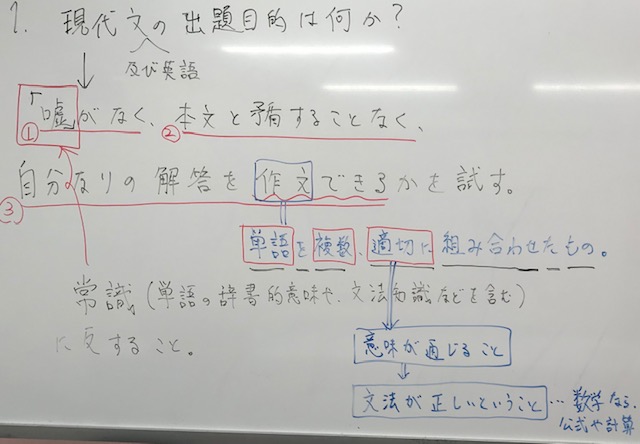 1. 現代文の出題目的は何か?
及び英語
①「嘘」がなく、②本文と矛盾することなく、
③自分なりの解答を作文できるかを試す。
単語を複数、適切に組み合わせたもの。
常識(単語の辞書的意味や、文法知識などを含む)
に反すること。
意味が通じること
文法が正しいということ…数学なら、
公式や計算